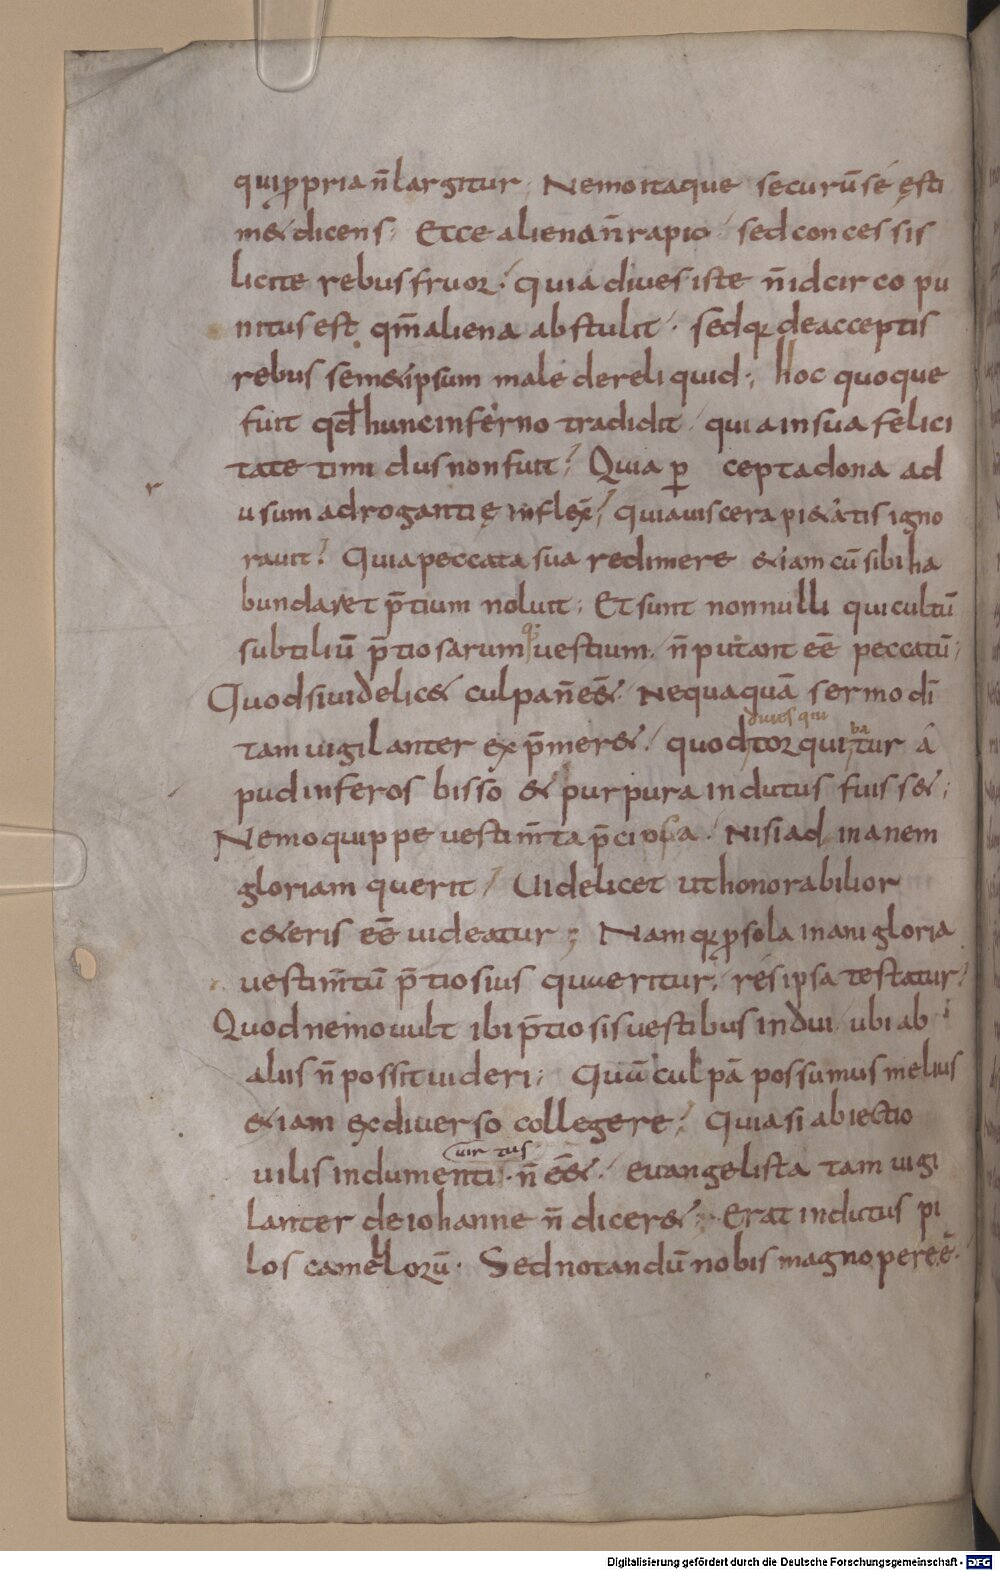 quip̱pria n̄ largitur; Nemo itaque securū sé ęsti
m& dicens; Ecce aliena n̄ rapio / sed concessis
licite rebus fruor; quia diues iste n̄ idcirco pu
nitus est, qm̄ aliena abstulit · sed qͥ de acceptis
rebus sem&ipsum male dereliquid·; hoc quoque
fuit qđ hunc inferno tradidit / quia in sua felici
tate timidus non fuit? Quia p̱ cepta dona ad
usum adrogantię inflex̄ / quia uiscera pi&atis igno
rauit? Quia peccata sua redimere &iam cū sibi ha
bundaret p̄tium noluit; Et sunt nonnulli qui cultū
subtiliū p̄tiosarum q; uestium / n̄ putant eē peccatū;
Quod si uidelic& culpa n̄ eē& / Nequaquā sermo dī
diues qui ba
tam uigilanter exp̄mer& / quod torquitur á
pud inferos bisso & purpura indutus fuiss&;
Nemo quippe uestim̄ta p̄ciosa · Nisi ad inanem
gloriam querit / Uidelicet ut honorabilior
c&eris eē uideatur; Nam qͥ p̱ sola inani gloria
uestim̄tū p̄tiosius quueritur; res ipsa testatur;
Quod nemo uult ibi p̄tiosis uestibus indui / ubi ab
aliis n̄ possit uideri; Quū culpā possumus melius
&iam ex diuerso collegere; Quia si abiectio
uir tus
uilis indumenti · n̄ eē& / euangelista tam uigi
lanter de iohanne n̄ dicer&; · Erat indutus pi
los camellorū · Sed notandū nobis magnopere ē ·
r
Digitalisierung gefördert durch die Deutsche Forschungsgemeinschaft - DFG